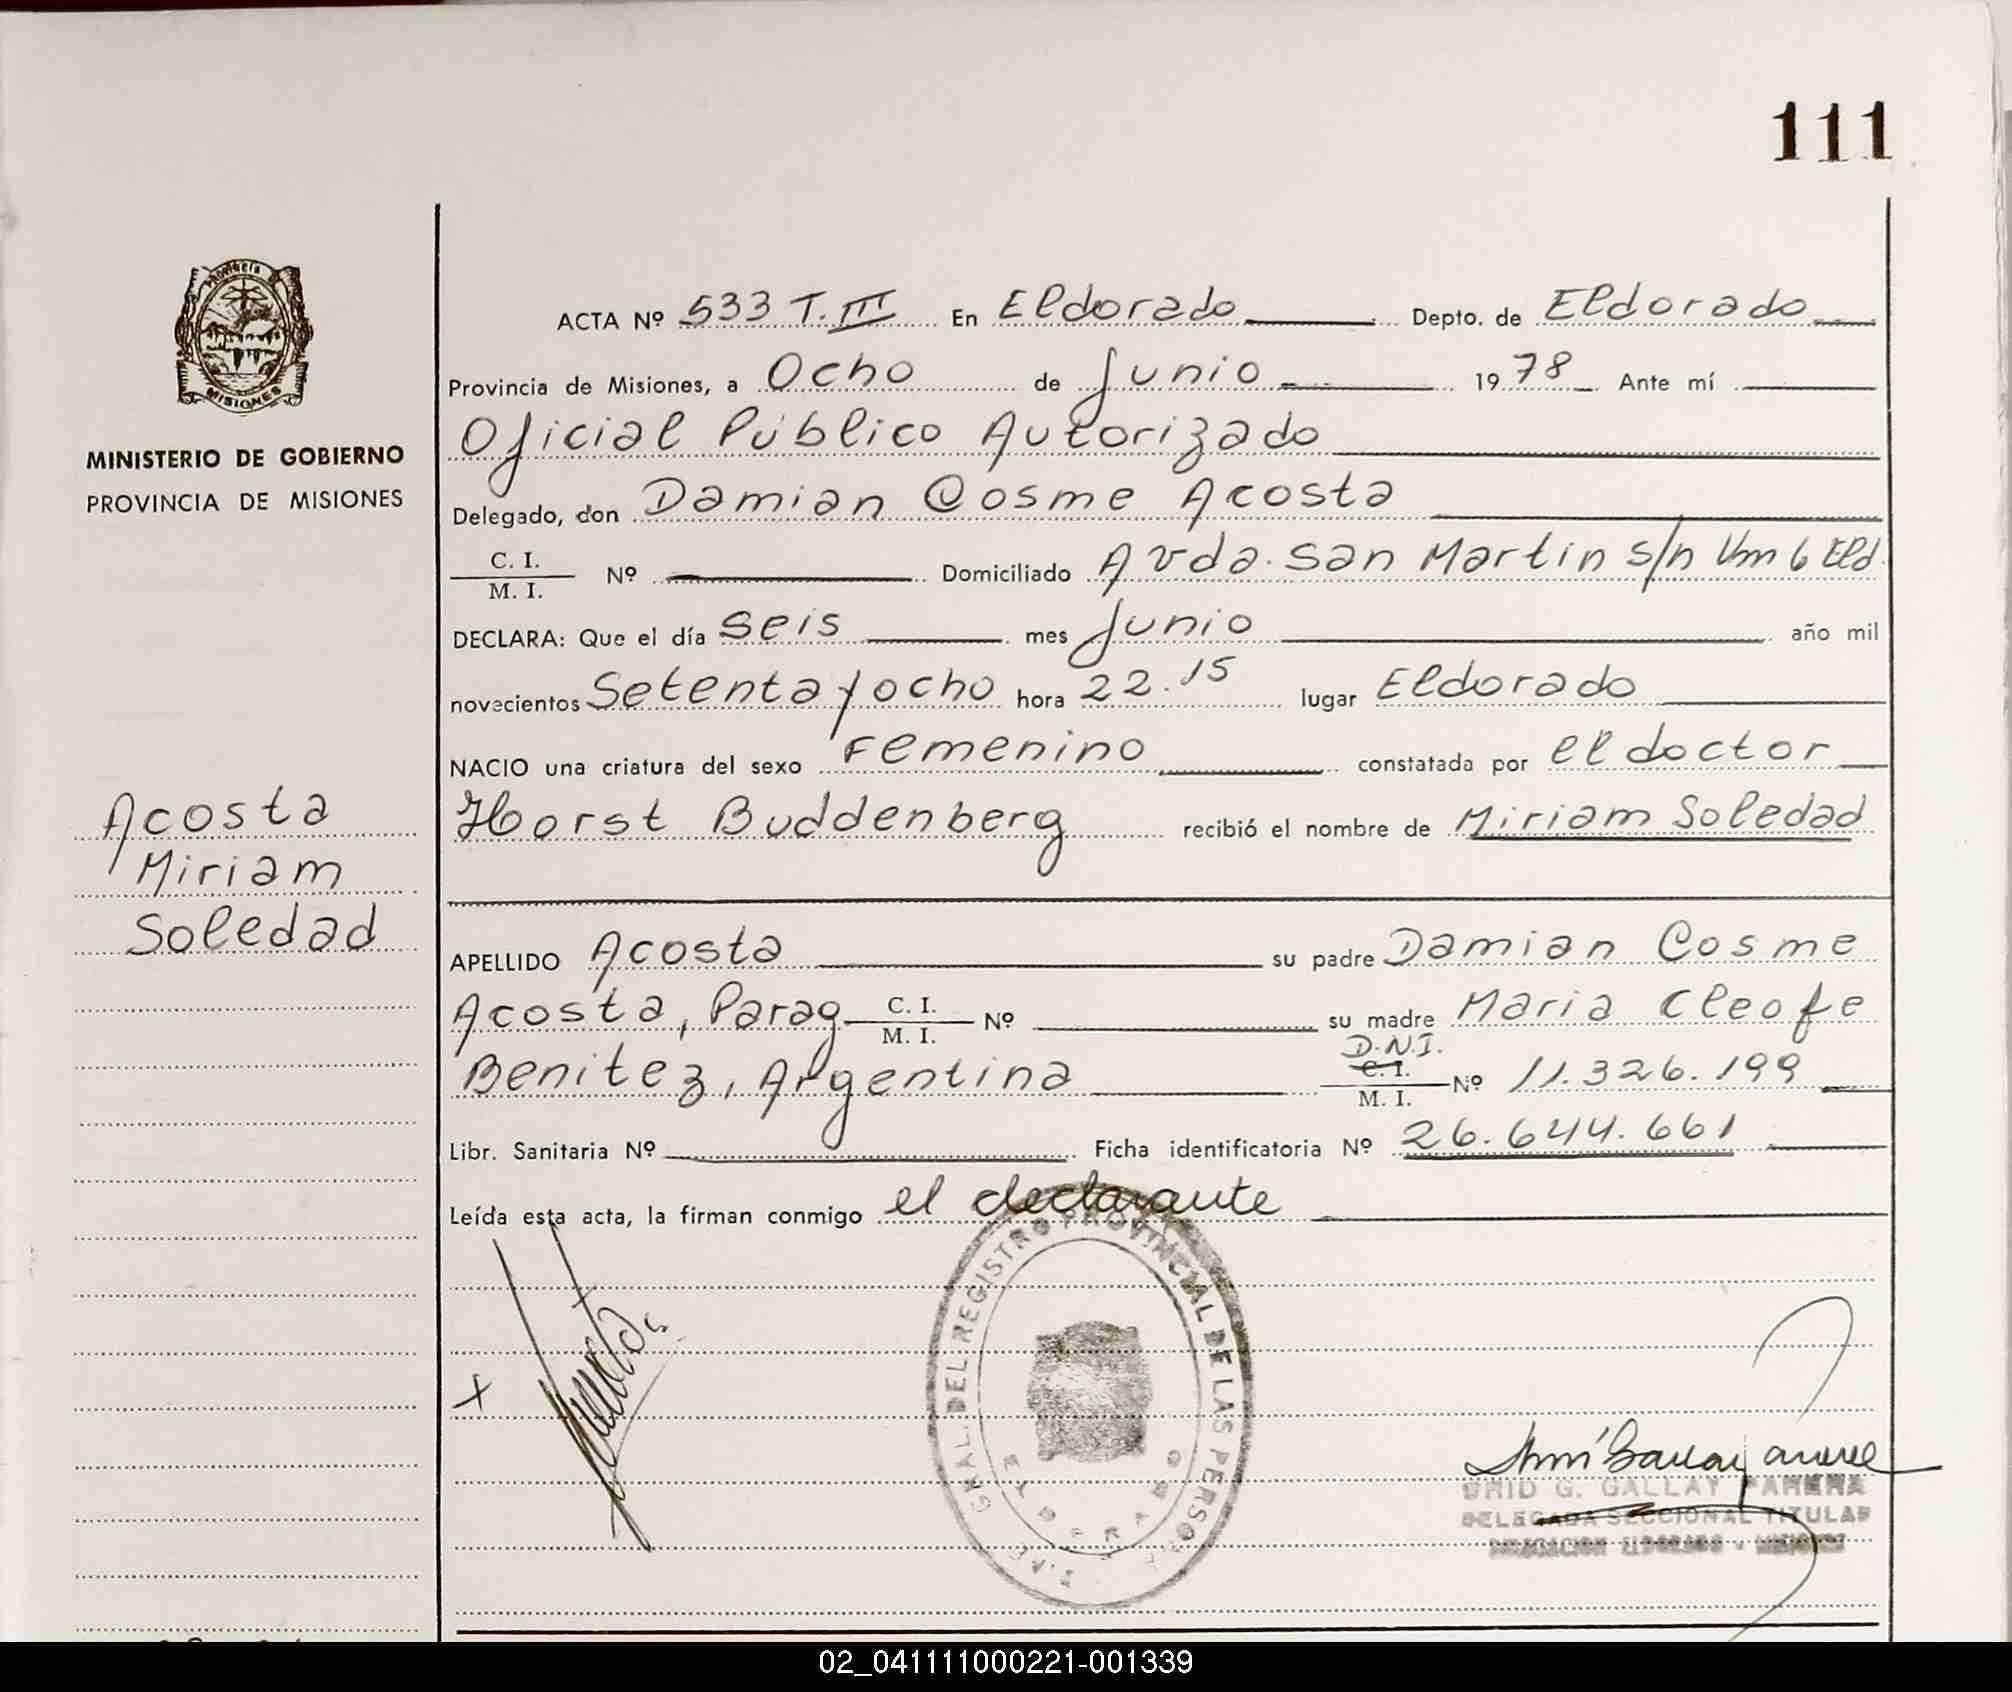 111
PROVINCIA
MISIONES
MINISTERIO DE GOBIERNO
PROVINCIA DE MISIONES
Acosta
Miriam
Soledad
ACTA Nº 533 T. III En Eldorado Depto. de Eldorado
Provincia de Misiones, a Ocho de Junio 1978 Ante mí
Oficial Público Autorizado
Delegado, don Damian Cosme Acosta
C. I.
M. I. Nº Domiciliado Avda. San Martin s/n Km 6 Eld.
DECLARA: Que el día Seis mes Junio año mil
novecientos Setenta y ocho hora 22.15 lugar Eldorado
NACIO una criatura del sexo Femenino constatada por el doctor
Horst Buddenberg recibió el nombre de Miriam Soledad
APELLIDO Acosta su padre Damian Cosme
Acosta, Parag C. I. M. I. Nº su madre Maria Cleofe
Benitez, Argentina D.N.I. C. I. M. I. Nº 11.326.199
Libr. Sanitaria Nº Ficha identificatoria Nº 26.644.661
Leída esta acta, la firman conmigo el declarante
GRAL. DEL REGISTRO PROVINCIAL DE LAS PERSO
x
G. GALLAY PARERA
DELEGADA SECCIONAL TITULAR
DELEGACION ELDORADO - MISIONES
02_041111000221-001339